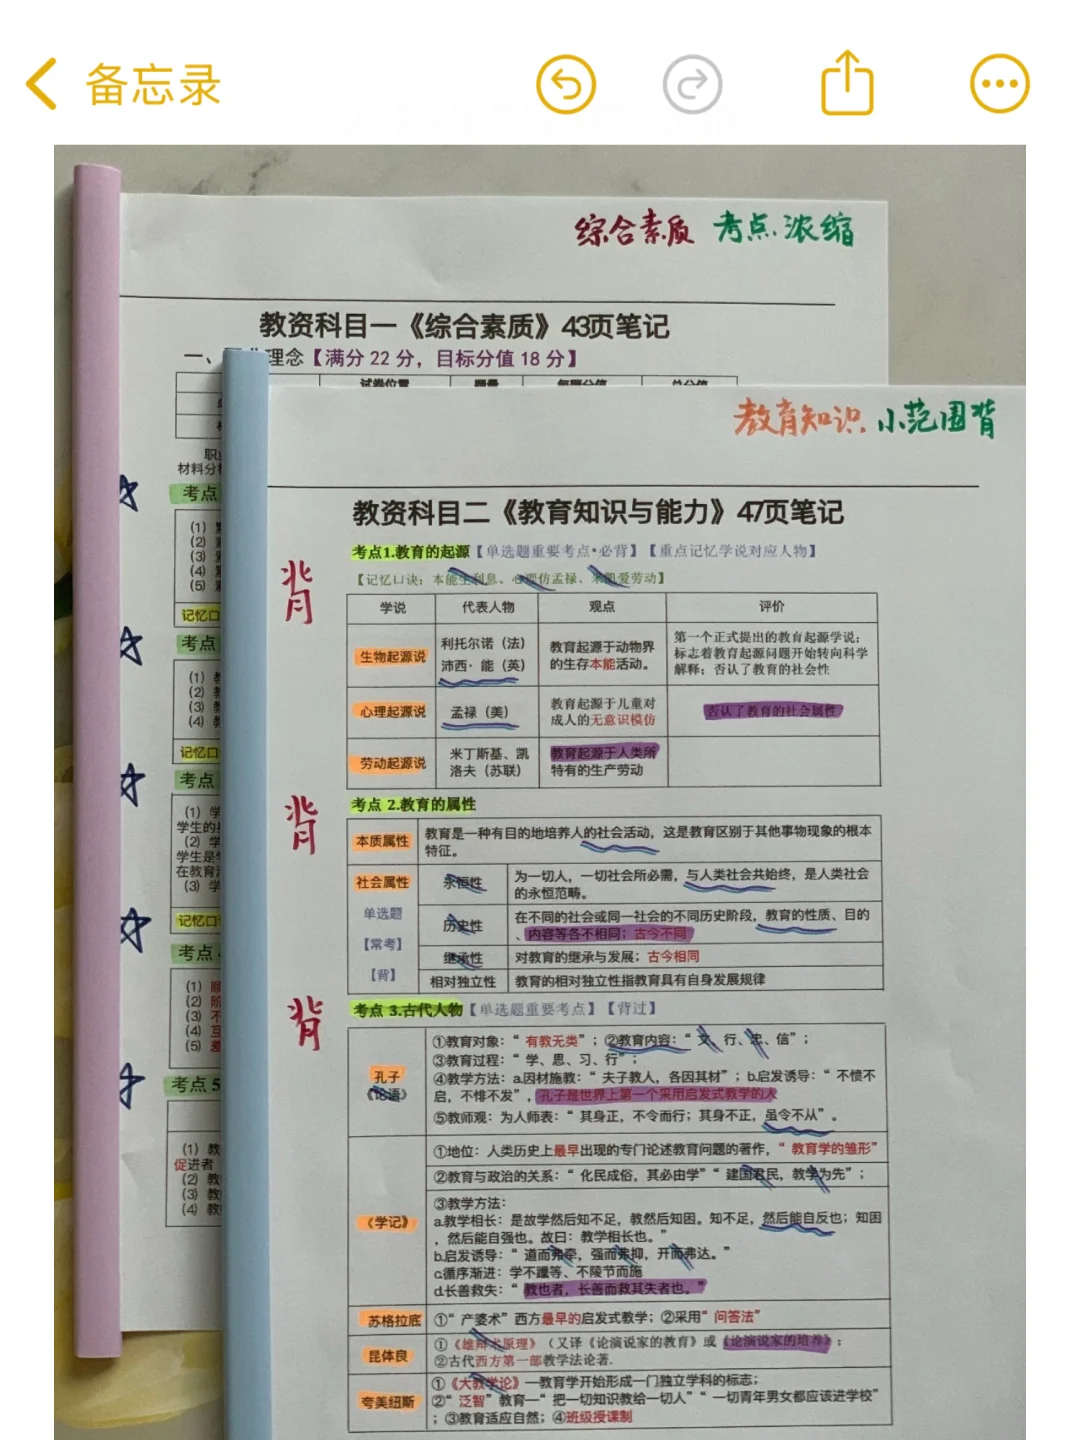 备忘录
综合素质 考点浓缩
教资科目一《综合素质》43页笔记
一、理念【满分22分，目标分值18分】
试卷位置 题量 每题分值 总分值
职业
材料分析
考点
(1)
(2)
(3)
(4)
(5)
记忆口
考点
(1)
(2)
(3)
(4)
记忆口
考点
(1) 学
学生的
(2) 学
学生是
在教育
(3) 学
记忆口
考点
(1) 顺
(2) 阶
(3) 不
(4) 互
(5) 差
考点5
(1) 教
促进者
(2) 教
(3) 教
(4) 教
教育知识 小范围背
教资科目二《教育知识与能力》47页笔记
考点1.教育的起源【单选题重要考点·必背】【重点记忆学说对应人物】
【记忆口诀：本能生利息、心理仿孟禄、米凯爱劳动】
背
学说 代表人物 观点 评价
生物起源说 利托尔诺（法） 沛西·能（英） 教育起源于动物界的生存本能活动。 第一个正式提出的教育起源学说；标志着教育起源问题开始转向科学解释；否认了教育的社会性
心理起源说 孟禄（美） 教育起源于儿童对成人的无意识模仿 否认了教育的社会属性
劳动起源说 米丁斯基、凯洛夫（苏联） 教育起源于人类所特有的生产劳动
背
考点 2.教育的属性
本质属性 教育是一种有目的地培养人的社会活动，这是教育区别于其他事物现象的根本特征。
社会属性 单选题 【常考】 【背】
永恒性 为一切人，一切社会所必需，与人类社会共始终，是人类社会的永恒范畴。
历史性 在不同的社会或同一社会的不同历史阶段，教育的性质、目的、内容等各不相同；古今不同
继承性 对教育的继承与发展；古今相同
相对独立性 教育的相对独立性指教育具有自身发展规律
背
考点 3.古代人物【单选题重要考点】【背过】
孔子
《论语》
①教育对象：“有教无类”；②教育内容：“文、行、忠、信”；
③教育过程：“学、思、习、行”；
④教学方法：a.因材施教：“夫子教人，各因其材”；b.启发诱导：“不愤不
启，不悱不发”，孔子是世界上第一个采用启发式教学的人
⑤教师观：为人师表：“其身正，不令而行；其身不正，虽令不从”。
《学记》
①地位：人类历史上最早出现的专门论述教育问题的著作，“教育学的雏形”
②教育与政治的关系：“化民成俗，其必由学”“建国君民，教学为先”；
③教学方法：
a.教学相长：是故学然后知不足，教然后知困。知不足，然后能自反也；知困
，然后能自强也。故曰：教学相长也。”
b.启发诱导：“道而弗牵，强而弗抑，开而弗达。”
c.循序渐进：学不躐等、不陵节而施
d.长善救失：“教也者，长善而救其失者也。”
苏格拉底 ①“产婆术”西方最早的启发式教学；②采用“问答法”
昆体良
①《雄辩术原理》（又译《论演说家的教育》或《论演说家的培养》；
②古代西方第一部教学法论著.
夸美纽斯
①《大教学论》—教育学开始形成一门独立学科的标志；
②“泛智”教育—“把一切知识教给一切人”“一切青年男女都应该进学校”
；③教育适应自然；④班级授课制